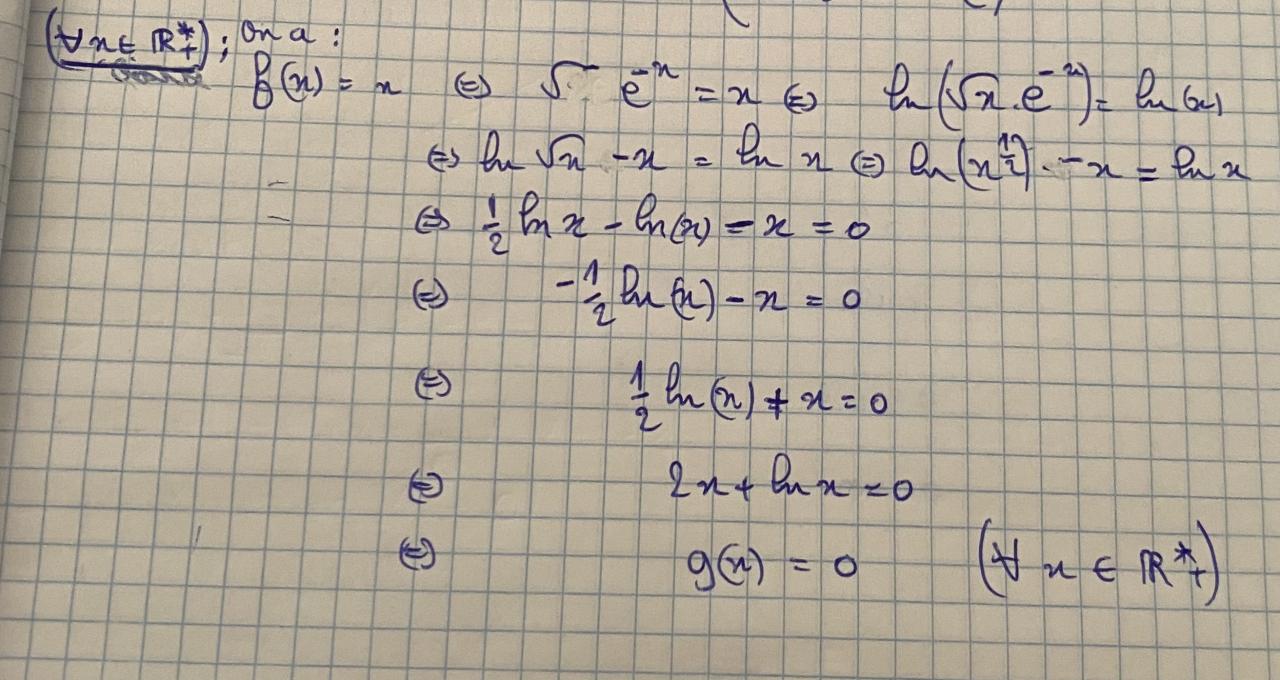 (∀ x ∈ ℝ*₊) ; on a :
f(x) = x ⇔ √ e⁻ˣ = x ⇔ ln(√x . e⁻ˣ) = ln(x)
⇔ ln √x - x = ln x ⇔ ln(x^(1/2)) - x = ln x
⇔ 1/2 ln x - ln(x) - x = 0
⇔ -1/2 ln(x) - x = 0
⇔ 1/2 ln(x) + x = 0
⇔ 2x + ln x = 0
⇔ g(x) = 0 (∀ x ∈ ℝ*₊)